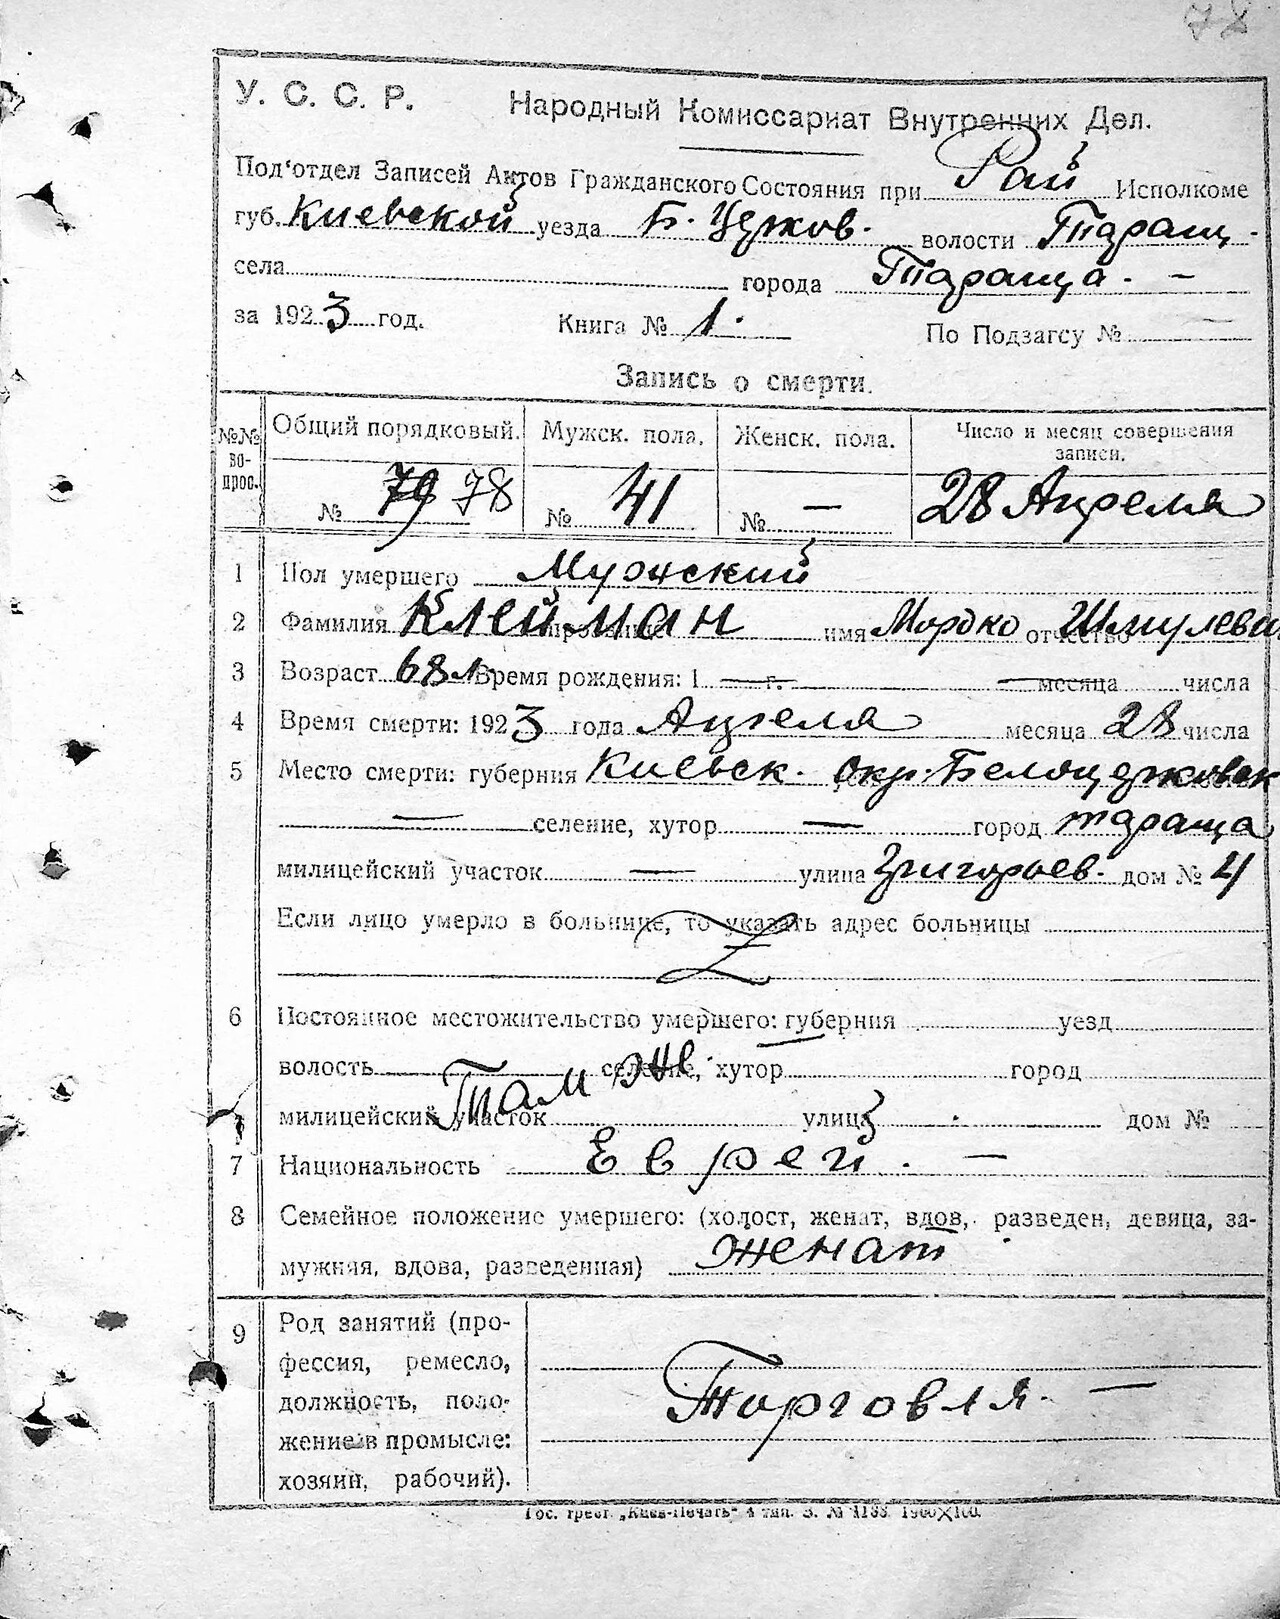 78
У. С. С. Р. Народный Комиссариат Внутренних Дел.
Под'отдел Записей Актов Гражданского Состояния при Рай Исполкоме
губ. Киевской уезда Б. Церков. волости Таращ.
села города Тараща. —
за 1923 год. Книга № 1. По Подзагсу № —
Запись о смерти.
№№ во- прос. Общий порядковый. Мужск. пола. Женск. пола. Число и месяц совершения записи.
№ 79 78 № 41 № — 28 Апреля
1 Пол умершего Мужский
2 Фамилия Клейман имя Мордко отчество Шмулевич
3 Возраст 68 л. Время рождения: 1 г. месяца числа
4 Время смерти: 1923 года Апреля месяца 28 числа
5 Место смерти: губерния Киевск. окр. Белоцерковск
— селение, хутор — город Тараща
милицейский участок — улица Григорьев. дом № 4
Если лицо умерло в больнице, то указать адрес больницы
6 Постоянное местожительство умершего: губерния уезд
волость селение, хутор город
Там же
милицейский участок улица дом №
7 Национальность Еврей. —
8 Семейное положение умершего: (холост, женат, вдов, разведен, девица, за-
мужняя, вдова, разведенная) женат
9 Род занятий (про-
фессия, ремесло,
должность, поло-
жение в промысле:
хозяин, рабочий).
Торговля. —
Гос. трест „Киев-Печать" 4 тип. З. № 1188. 1900×100.